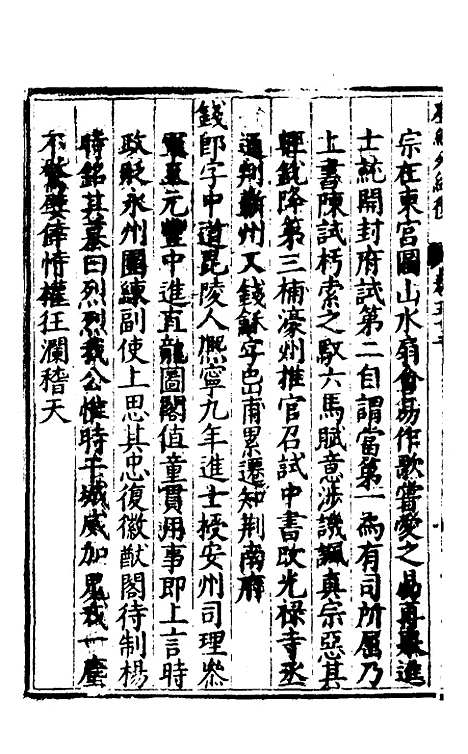 宗在東宮圖山水扇會易作歌嘗愛之易再舉進
士就開封府試第二自謂當第一為有司所屈乃
上書陳試朽索之馭六馬賦意涉譏諷真宗惡其
輕銳降第三補濠州推官召試中書改光祿寺丞
通判蘄州又錢龢字岊甫累遷知荆南府
錢即字中道毘陵人熙寧九年進士授安州司理
至元豐中進直龍圖閣值童貫用事即上言時
政貶永州團練副使上思其忠復徽猷閣待制楊
時銘其墓曰烈烈我公惟時干城威加羌戎一塵
不驚嬖倖恃權狂瀾稽天